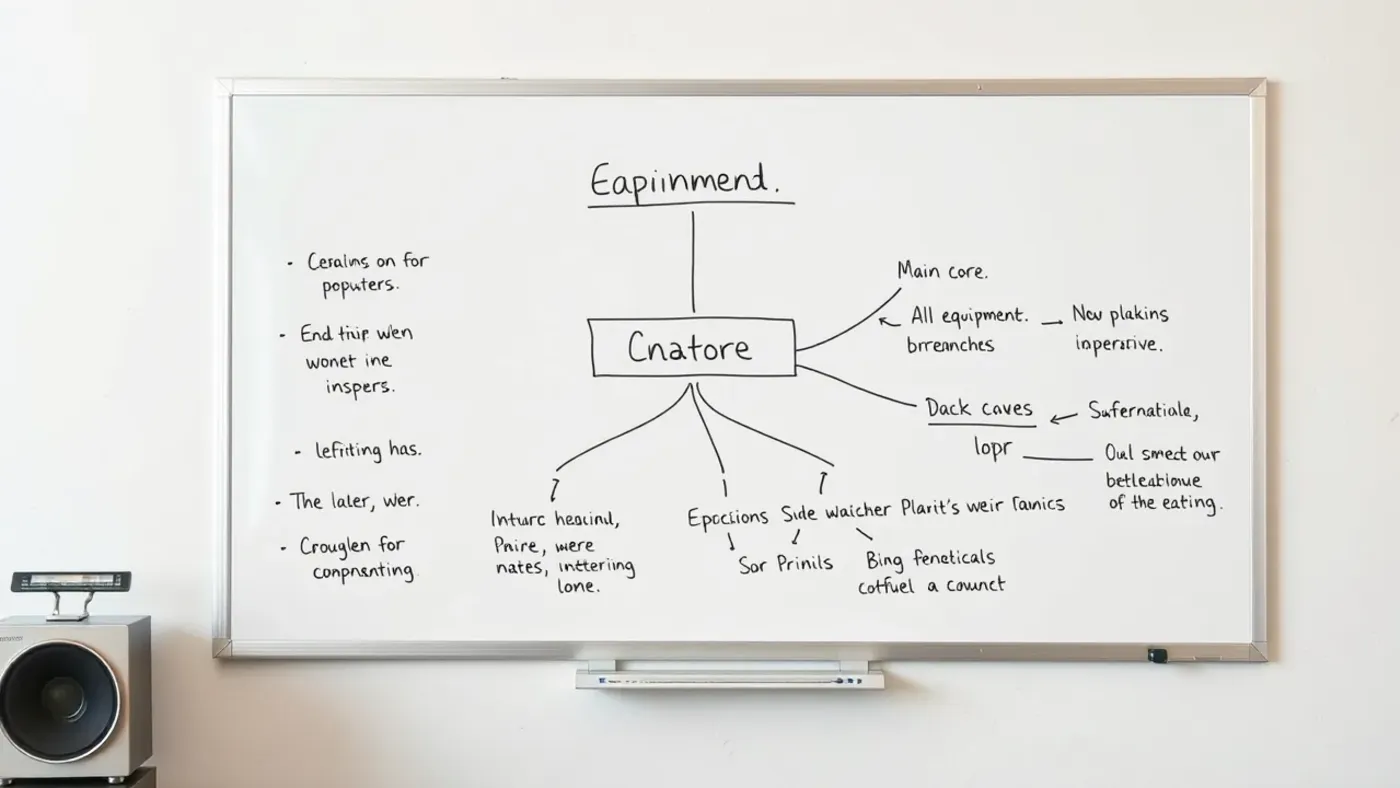 Eapiinmend.
Cnatore
- Ceralms on for
poputers.
- End thip wen
wonet ine
inspers.
- lefitting has.
- The laler, wer.
- Crouglen for
conpnsnting.
Main core.
All equipment.
brreanches
New plakins
inperstive.
Dack caves
Sufernatiale,
lopr
Oul smect our
betleablowe
of the eating.
Inturc heacind,
Pnire, were
nates, inttering
lone.
Epoctions Side waicher Plarit's weir Fainics
Sor Prinils
Bing feneticals
cotfuel a counct